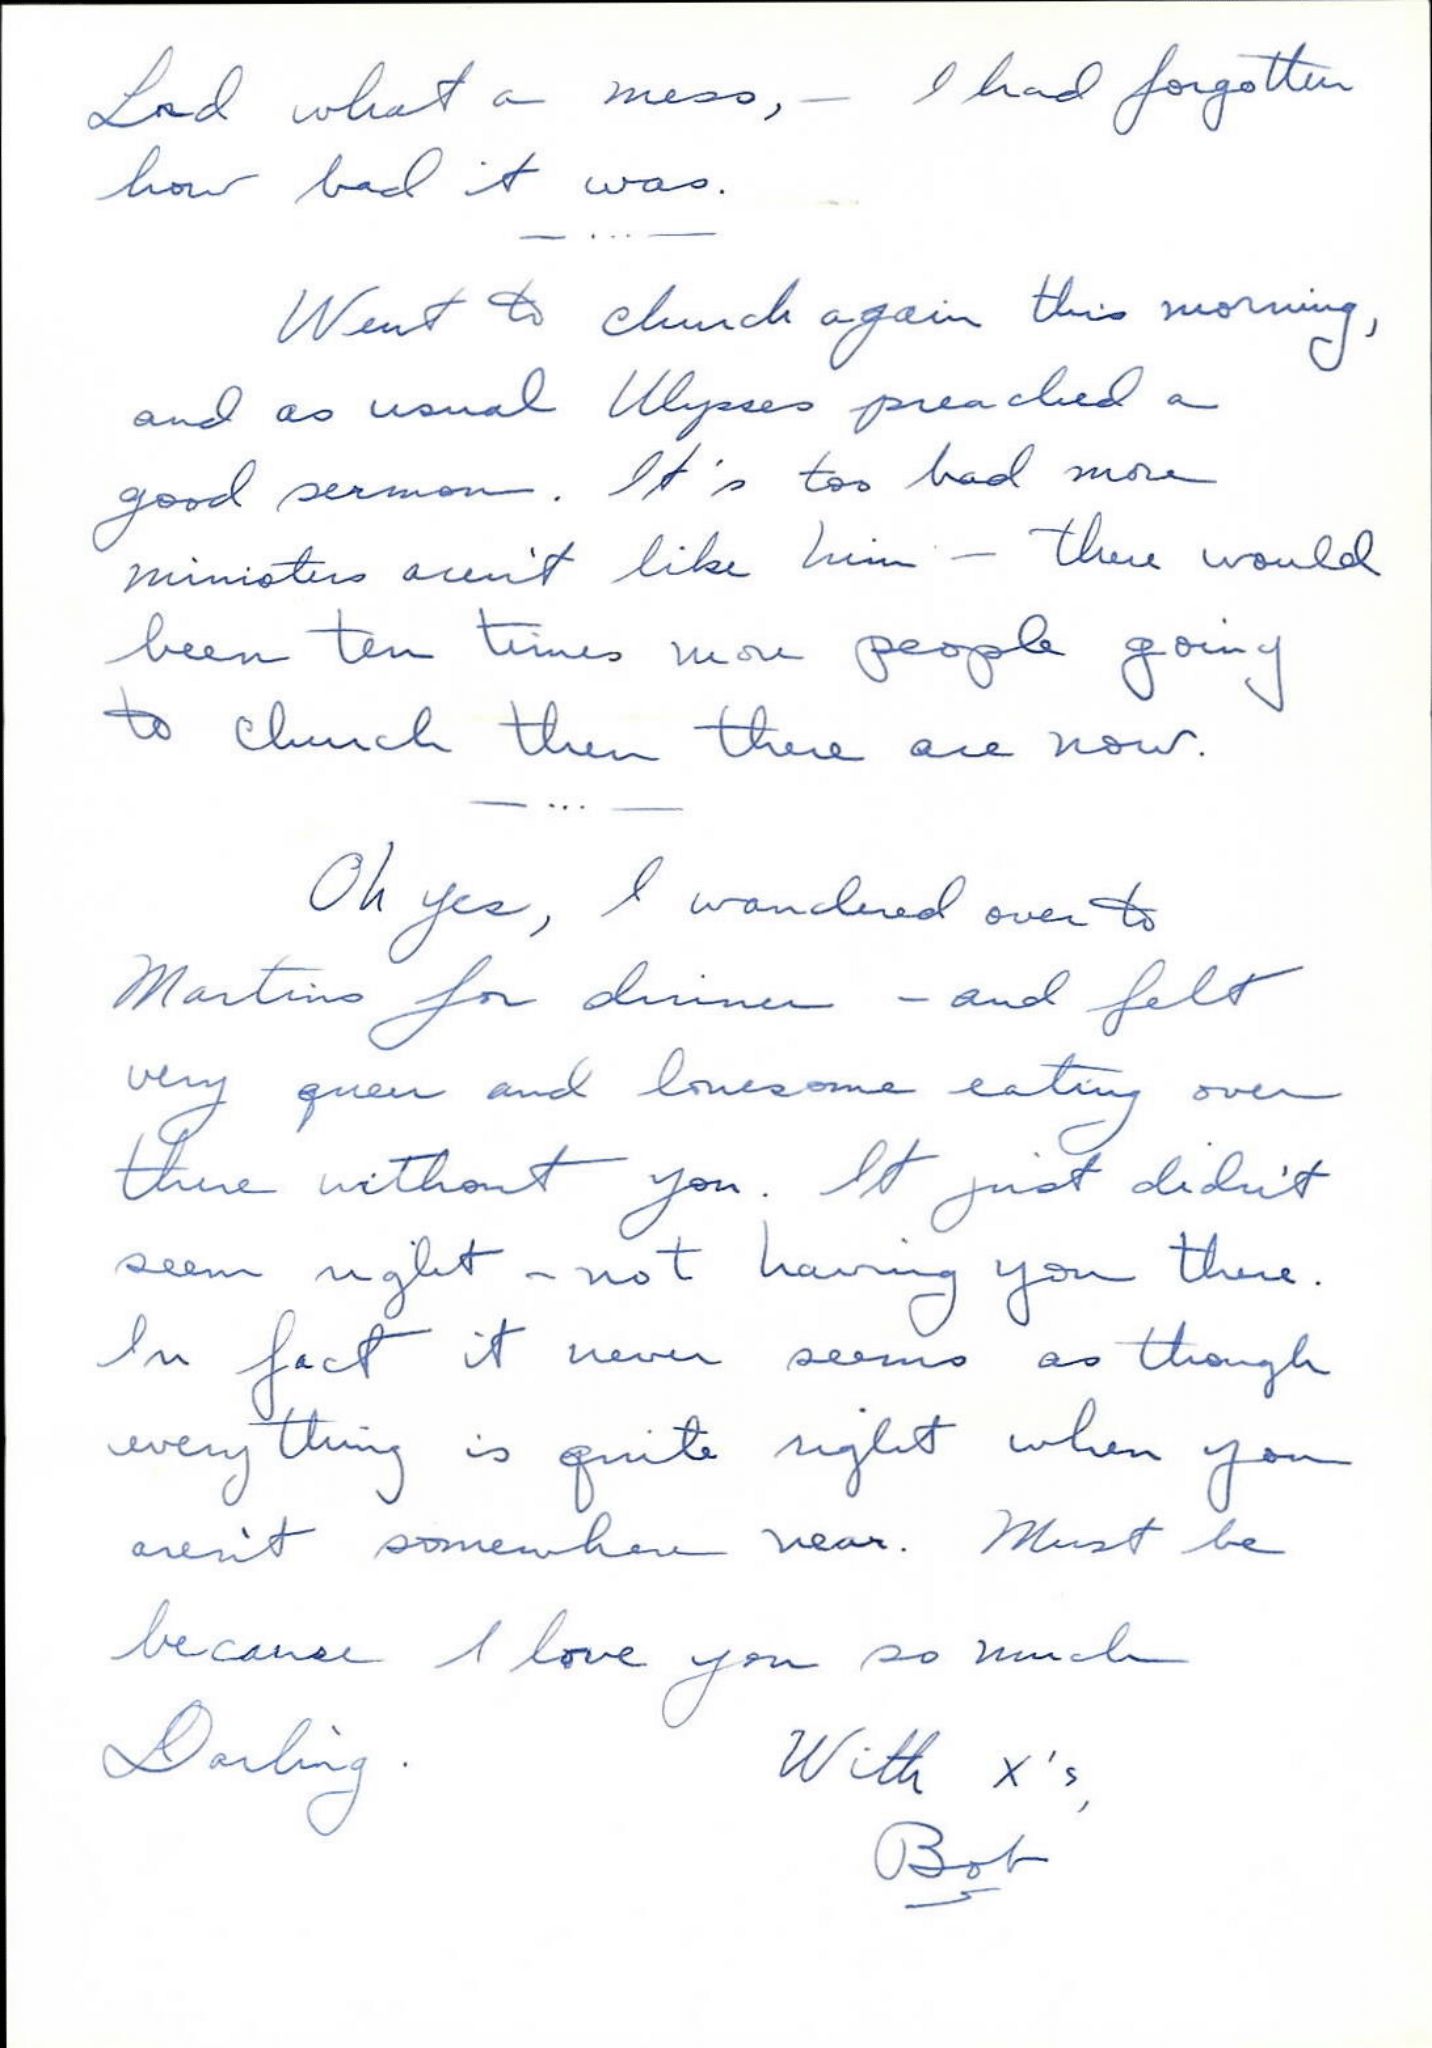 Lord what a mess, – I had forgotten
how bad it was.
— ... —
Went to church again this morning,
and as usual Ulysses preached a
good sermon. It's too bad more
ministers aren't like him – there would
been ten times more people going
to church then there are now.
— ... —
Oh yes, I wandered over to
Martins for dinner – and felt
very queer and lonesome eating over
there without you. It just didn't
seem right – not having you there.
In fact it never seems as though
everything is quite right when you
aren't somewhere near. Must be
because I love you so much
Darling. With x's,
Bob